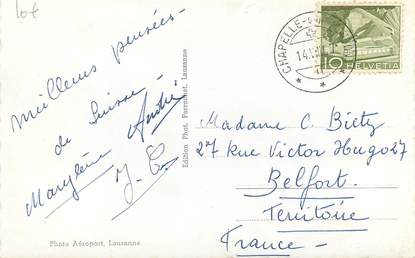 10€
Meilleures pensées -
de Suisse -
Marylène André
J. C.
Edition Phot. Perrochet, Lausanne
Photo Aéroport, Lausanne
CHAPELLE-s
14.
10 HELVETIA
Madame C. Biétz
27 Rue Victor Hugo 27
Belfort.
Territoire
France -